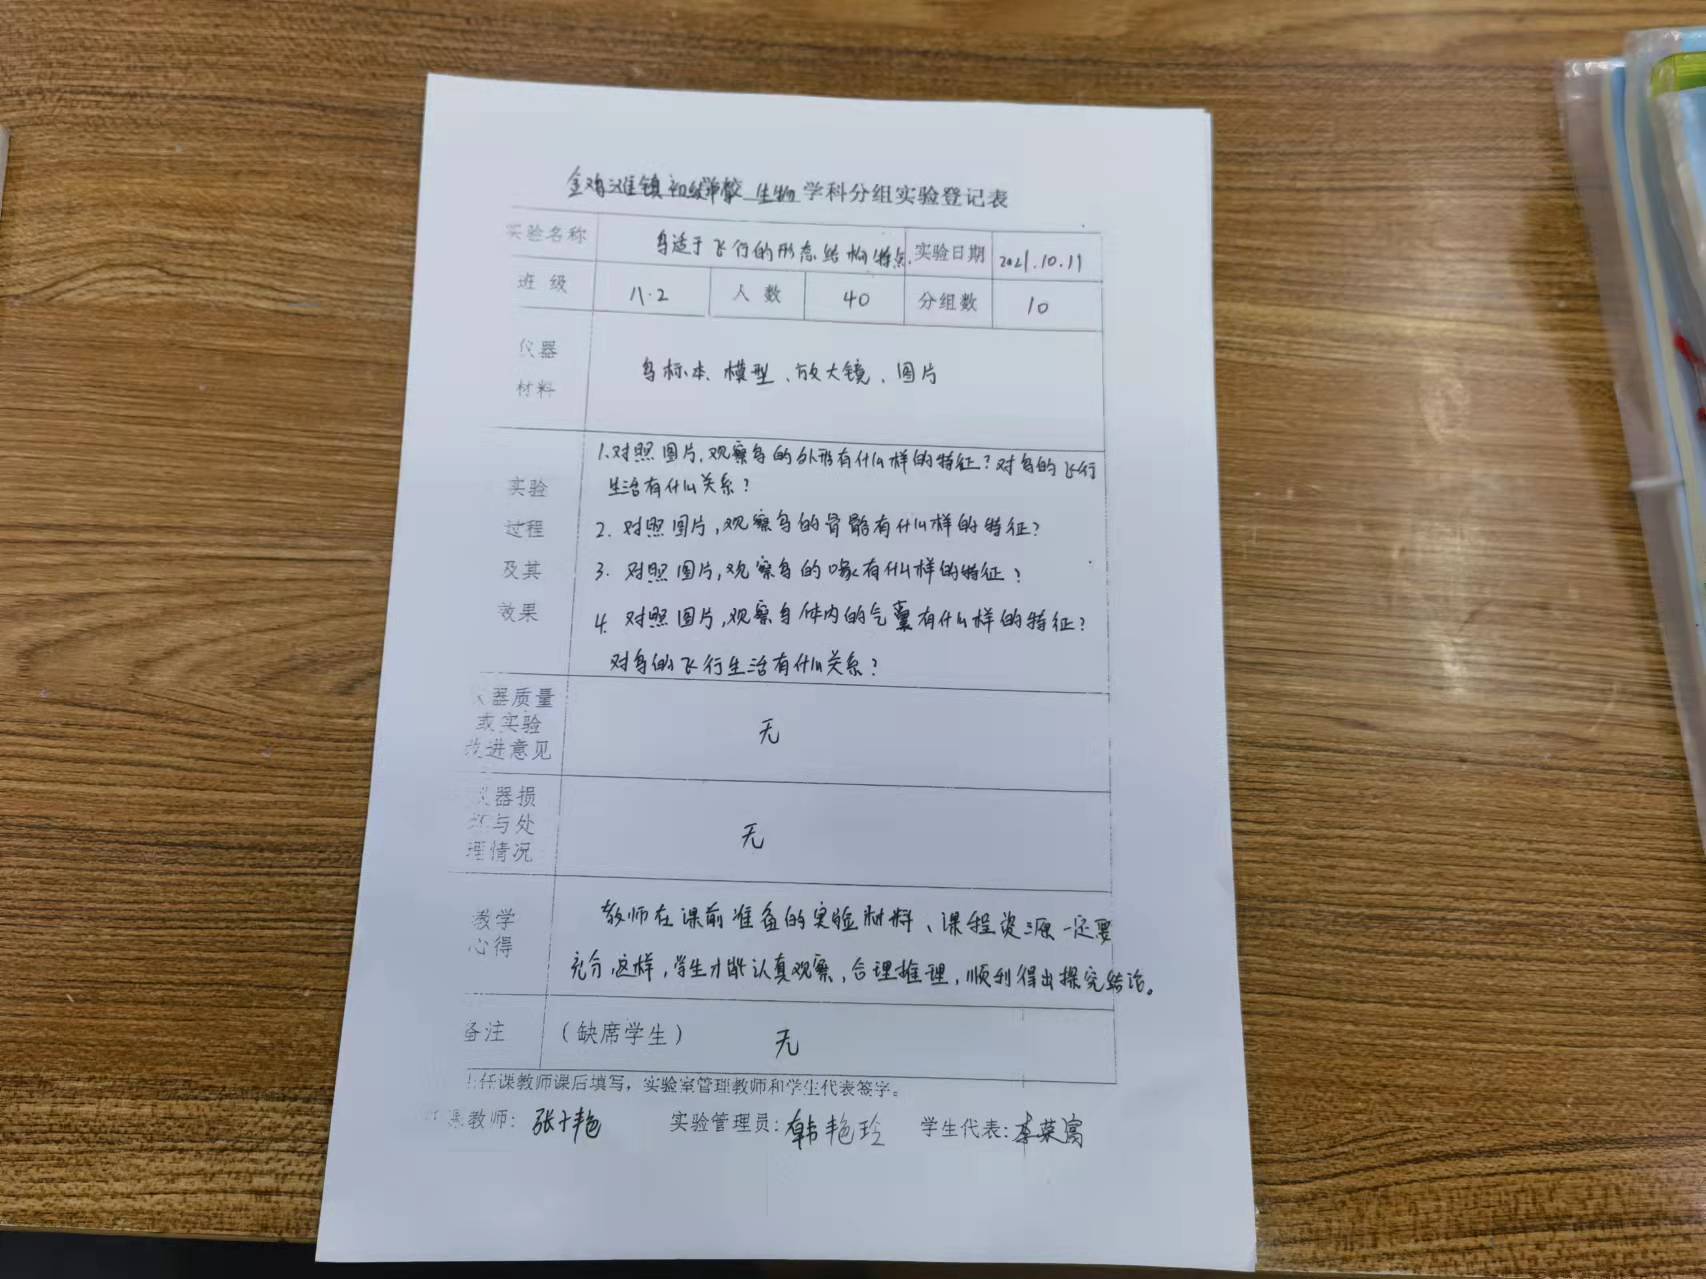 金鸡滩镇初级学校 生物 学科分组实验登记表
实验名称 鸟适于飞行的形态结构特点 实验日期 2021.10.11
班级 八.2 人数 40 分组数 10
仪器
材料
鸟标本、模型、放大镜、图片
实验
过程
及其
效果
1.对照图片,观察鸟的外形有什么样的特征?对鸟的飞行
生活有什么关系?
2. 对照图片,观察鸟的骨骼有什么样的特征?
3. 对照图片,观察鸟的喙有什么样的特征?
4. 对照图片,观察鸟体内的气囊有什么样的特征?
对鸟的飞行生活有什么关系?
器质量
或实验
改进意见
无
仪器损
坏与处
理情况
无
教学
心得
教师在课前准备的实验材料、课程资源一定要
充分,这样,学生才能认真观察,合理推理,顺利得出探究结论。
备注 (缺席学生) 无
任课教师课后填写,实验室管理教师和学生代表签字。
课教师: 张 艳 实验管理员: 韩艳玲 学生代表: 李荣富